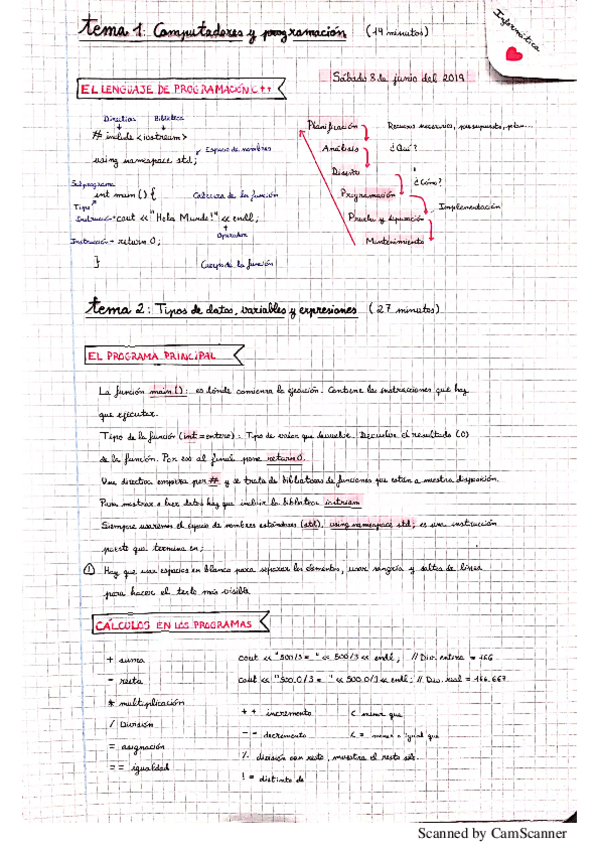 Tema 1: Computadores y programación (19 minutos)
Informática
Sábado 8 de junio del 2019
EL LENGUAJE DE PROGRAMACIÓN C++
Directiva Biblioteca
# include <iostream>
using namespace std;
Espacio de nombres
Subprograma
int main () { Cabecera de la función
Tipo
Instrucción cout << "Hola Mundo!" << endl;
Operador
Instrucción return 0;
} Cuerpo de la función
Planificación Recursos necesarios, presupuesto, plan...
Análisis ¿Qué?
Diseño
¿Cómo?
Programación
Implementación
Prueba y depuración
Mantenimiento
Tema 2: Tipos de datos, variables y expresiones (27 minutos)
EL PROGRAMA PRINCIPAL
La función main (): es dónde comienza la ejecución. Contiene las instrucciones que hay
que ejecutar.
Tipo de la función (int = entero): Tipo de valor que devuelve. Devuelve el resultado (0)
de la función. Por eso al final pone return 0.
Una directiva empieza por # y se trata de bibliotecas de funciones que están a nuestra disposición.
Para mostrar o leer datos hay que incluir la biblioteca
Siempre usaremos el espacio de nombres estándares (std), using namespace std; es una instrucción
puesto que termina en ;
! Hay que usar espacios en blanco para separar los elementos, usar sangría y saltos de línea
para hacer el texto más visible
CÁLCULOS EN LOS PROGRAMAS
+ suma cout << "500/3 = " << 500/3 << endl; // Div. entera = 166
- resta cout << "500.0/3 = " << 500.0/3 << endl; // Div. real = 166.667
* multiplicación
/ División
= asignación
== igualdad
++ incremento < menor que
-- decremento <= menor o igual que
% división con resto, muestra el resto
!= distinto de
Scanned by CamScanner